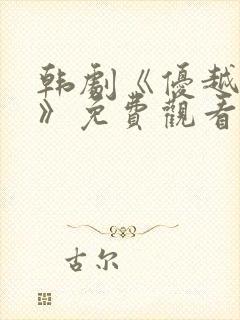 韩劇《優越
》免費觀看
古尔